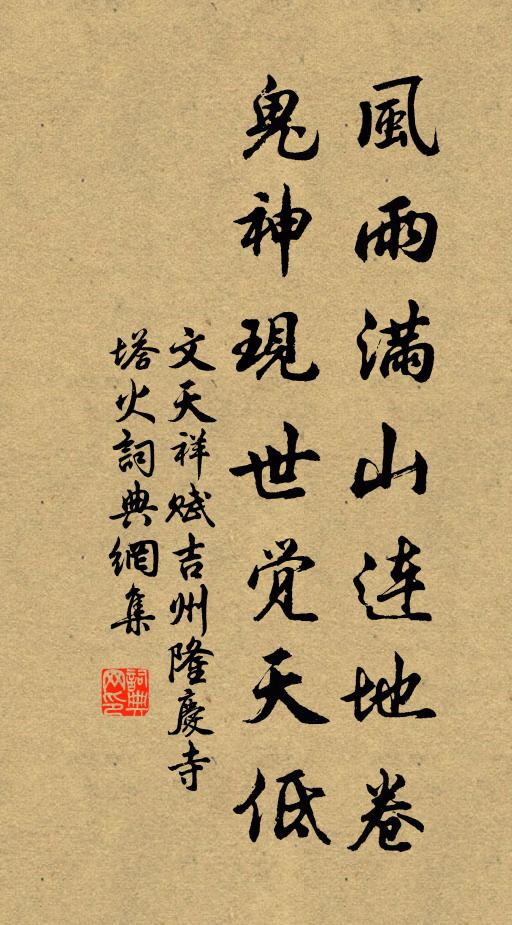 風雨满山連地卷
鬼神現世覺天低
文天祥賦吉州隆慶寺
塔火詞典網集
詞典
网印